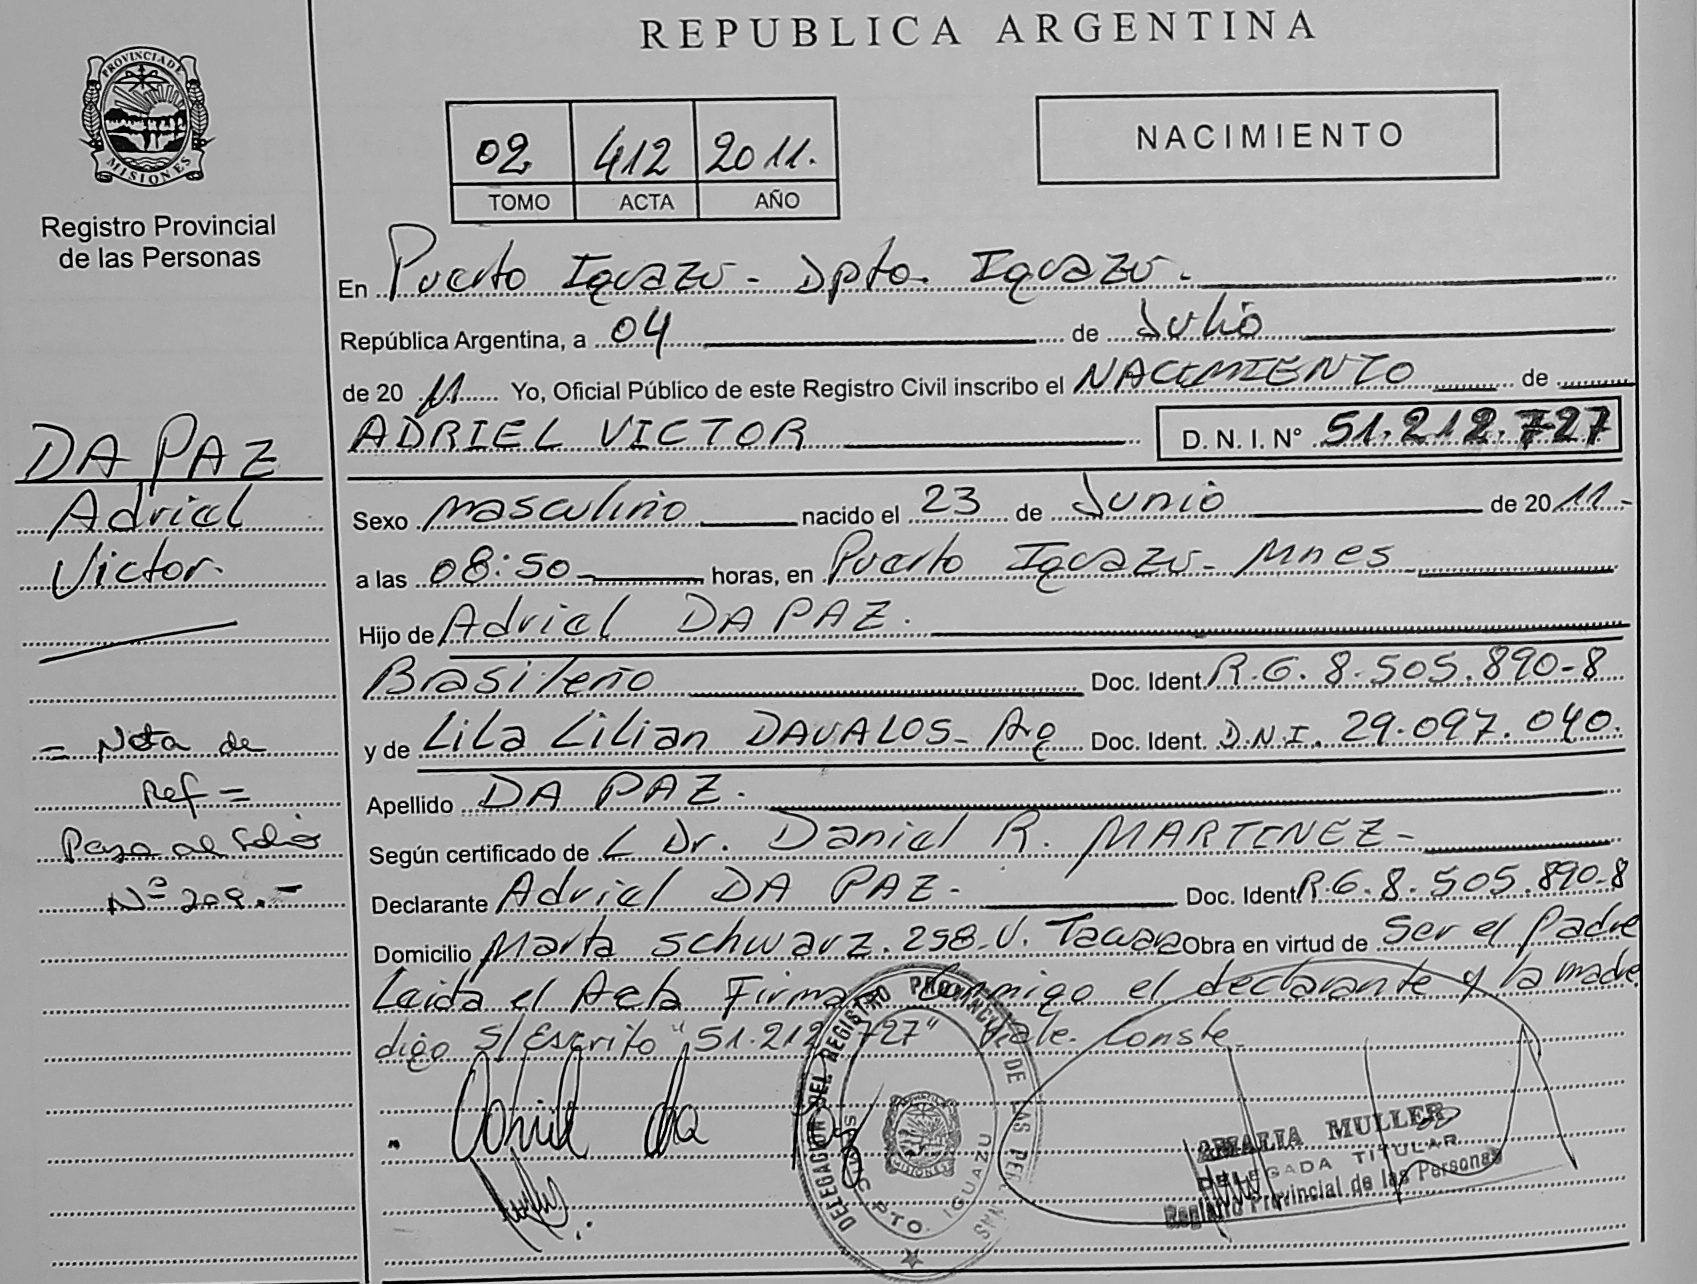 REPUBLICA ARGENTINA
PROVINCIA DE
MISIONES
Registro Provincial
de las Personas
02 412 2011.
TOMO ACTA AÑO
NACIMIENTO
En Puerto Iguazú - Dpto. Iguazú.
República Argentina, a 04 de Julio
de 2011 Yo, Oficial Público de este Registro Civil inscribo el NACIMIENTO de
ADRIEL VICTOR D. N. I. Nº 51.212.727
Sexo masculino nacido el 23 de Junio de 2011.-
a las 08:50 horas, en Puerto Iguazú - Mnes
Hijo de Adriel DA PAZ.
Brasileño Doc. Ident. R.G. 8.505.890-8
y de Lila Lilian DAVALOS - Ag Doc. Ident. D.N.I. 29.097.040.
Apellido DA PAZ.
Según certificado de L Dr. Daniel R. MARTINEZ -
Declarante Adriel DA PAZ - Doc. Ident R.G. 8.505.890-8
Domicilio Marta schwarz. 298 - V. Obra en virtud de Ser el Padre
Leida el Acta Firman Conmigo el declarante y la madre
digo S/ Escrito "51.212.727" Vale. Conste
DA PAZ
Adriel
Victor.
= Nota de
Ref =
Pasa al folio
Nº 209.-
DELEGACION DEL REGISTRO PROVINCIAL DE LAS PERSONAS
PTO. IGUAZU
MISIONES
AMALIA MULLER
DELEGADA TITULAR
Registro Provincial de las Personas